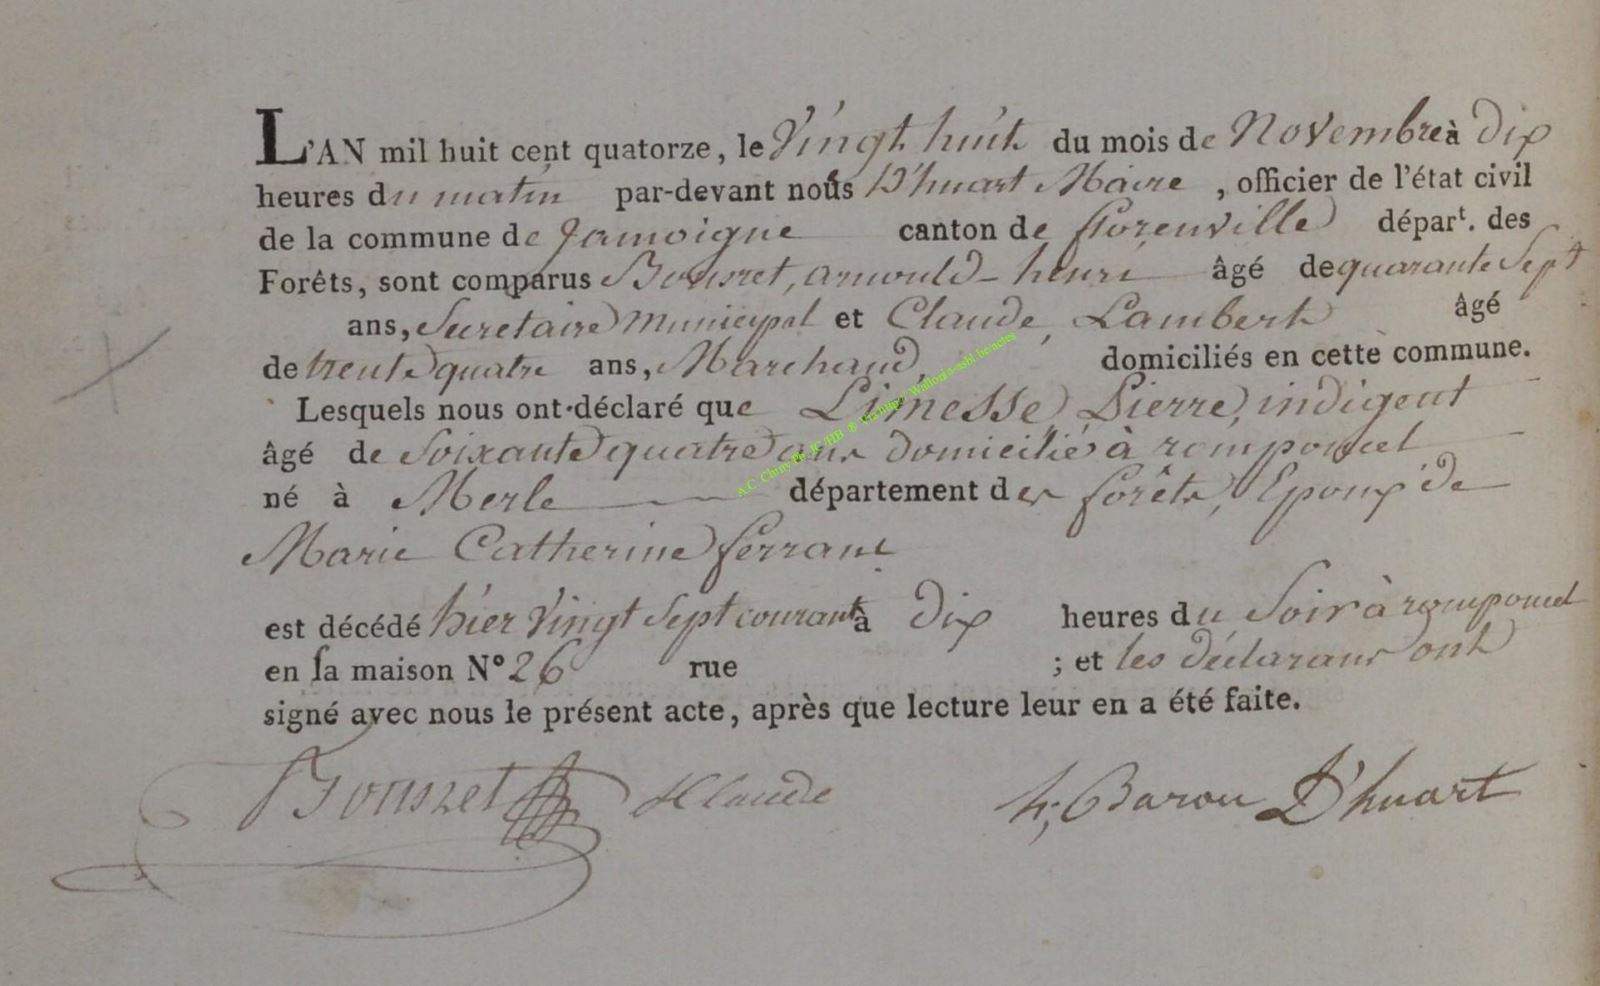 L'AN mil huit cent quatorze, le Vingt huit du mois de Novembre à dix
heures du matin par-devant nous D'huart Maire, officier de l'état civil
de la commune de Jamoigne canton de florenvilleépart. des
Forêts, sont comparus Bousret, arnould-henri âgé de quarante Sept
ans, Secretaire Municipal et Claude, Lambert âgé
de trente quatre ans, Marchand, domiciliés en cette commune.
Lesquels nous ont-déclaré que Limesse, Pierre, indigent
âgé de Soixante quatre ans domicilié à romponcel
né à Merle département des forêts, Epoux de
Marie Catherine ferrant
est décédé hier Vingt Sept courant à dix heures du Soir à romponcel
en sa maison N° 26 rue ; et les déclarans ont
signé avec nous le présent acte, après que lecture leur en a été faite.
Bousret Claude h; Baron D'huart